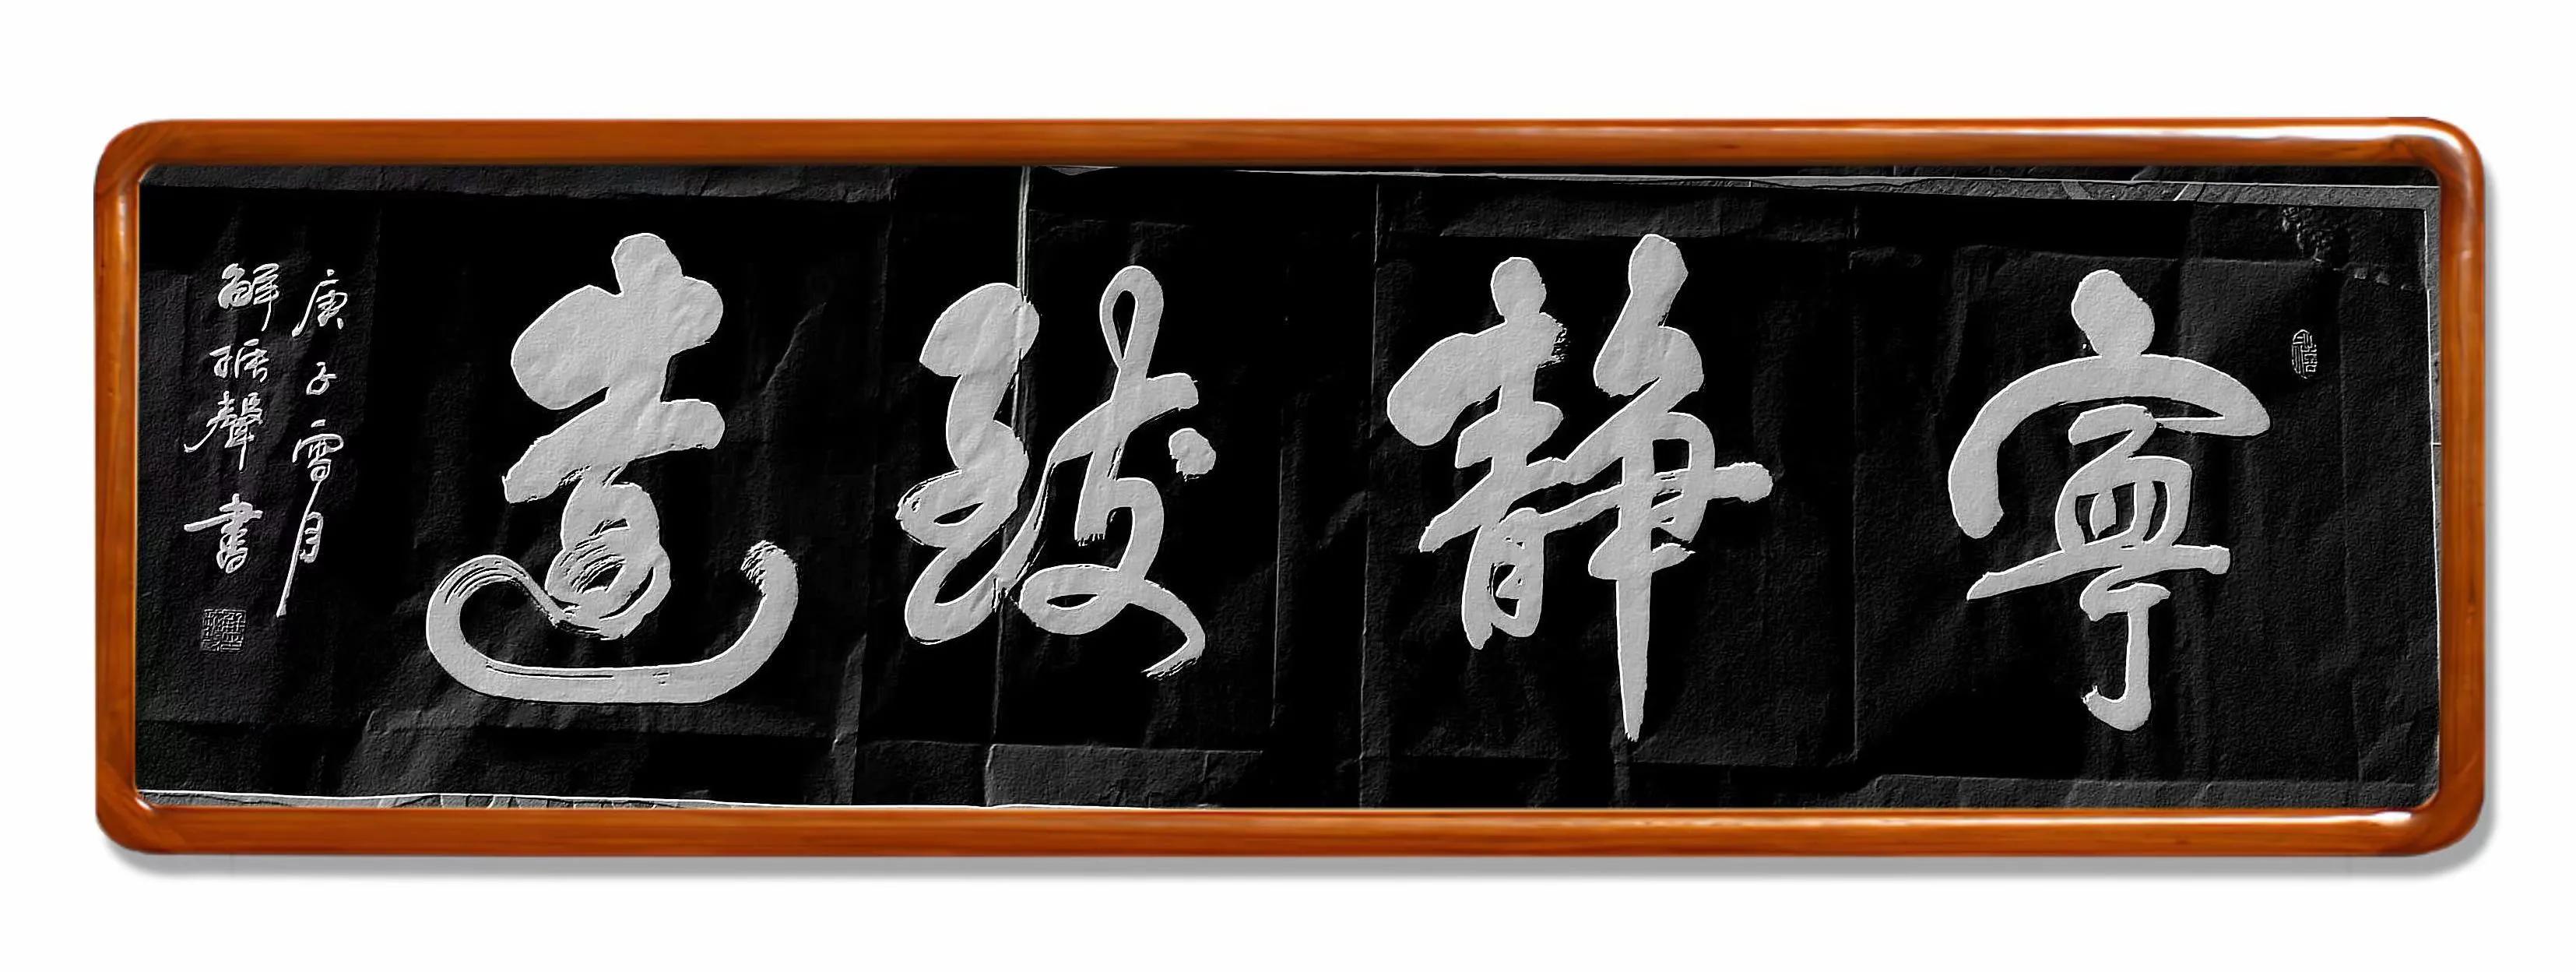 寧靜致遠
庚子雪月
解振聲書